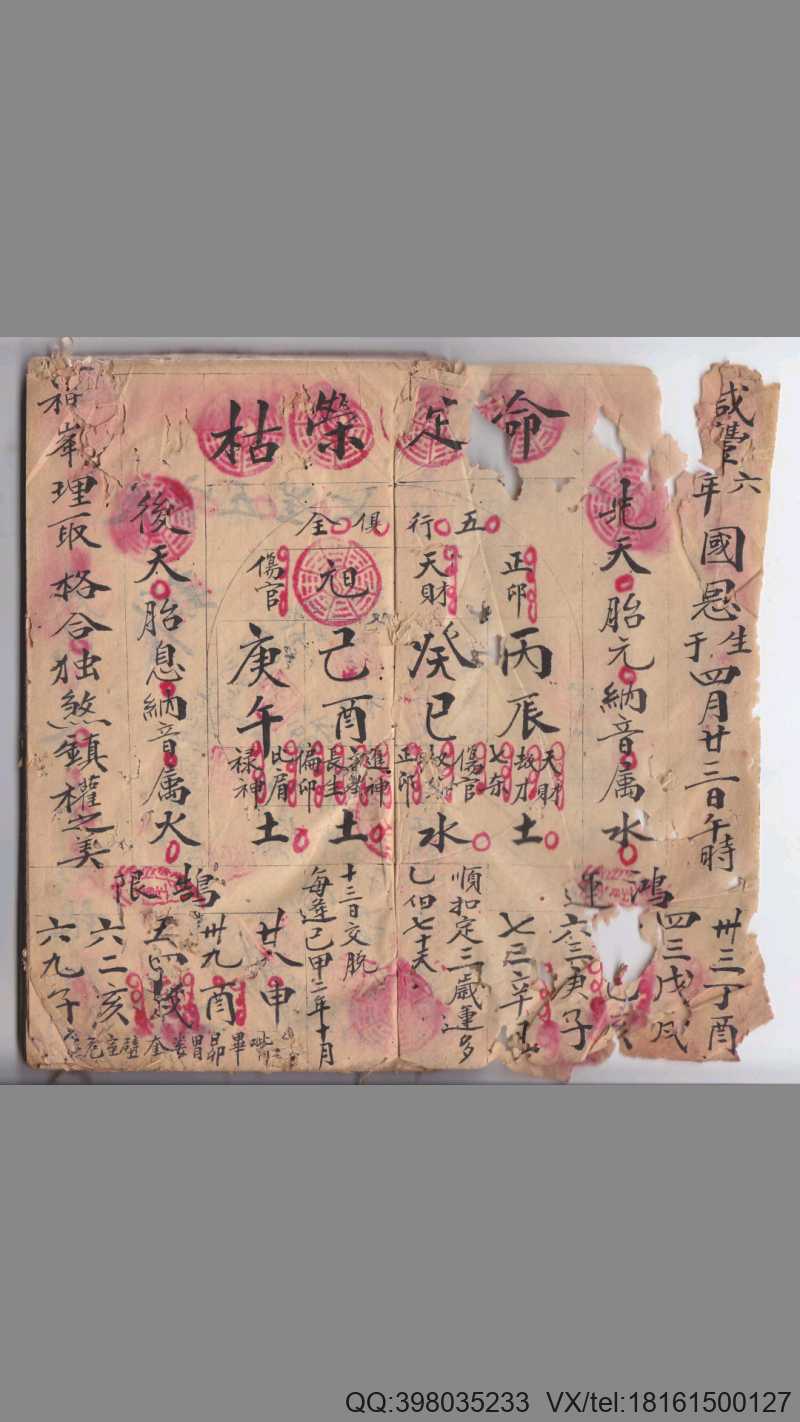 咸豐
六年
國恩生于四月廿三日午時
先天胎元納音属水
命定榮枯
五行俱全
正印
丙辰
天財
癸巳
旭
己酉
傷官
庚午
天財
七杀
傷官
正印
進神
長生
偏印
比肩
禄神
土
水
土
土
後天胎息納音属火
格合独煞鎮權之美
鴻運
卅三丁酉
四三戊戌
己亥
六三庚子
七三辛丑
順扣定三歲運多
乚但七十天
十三日交脫
每逢己甲二年十月
鵠限
廿八申
卅九酉
五四戌
六二亥
六九子
觜畢昴胃娄奎壁室危
QQ:398035233 VX/tel:18161500127